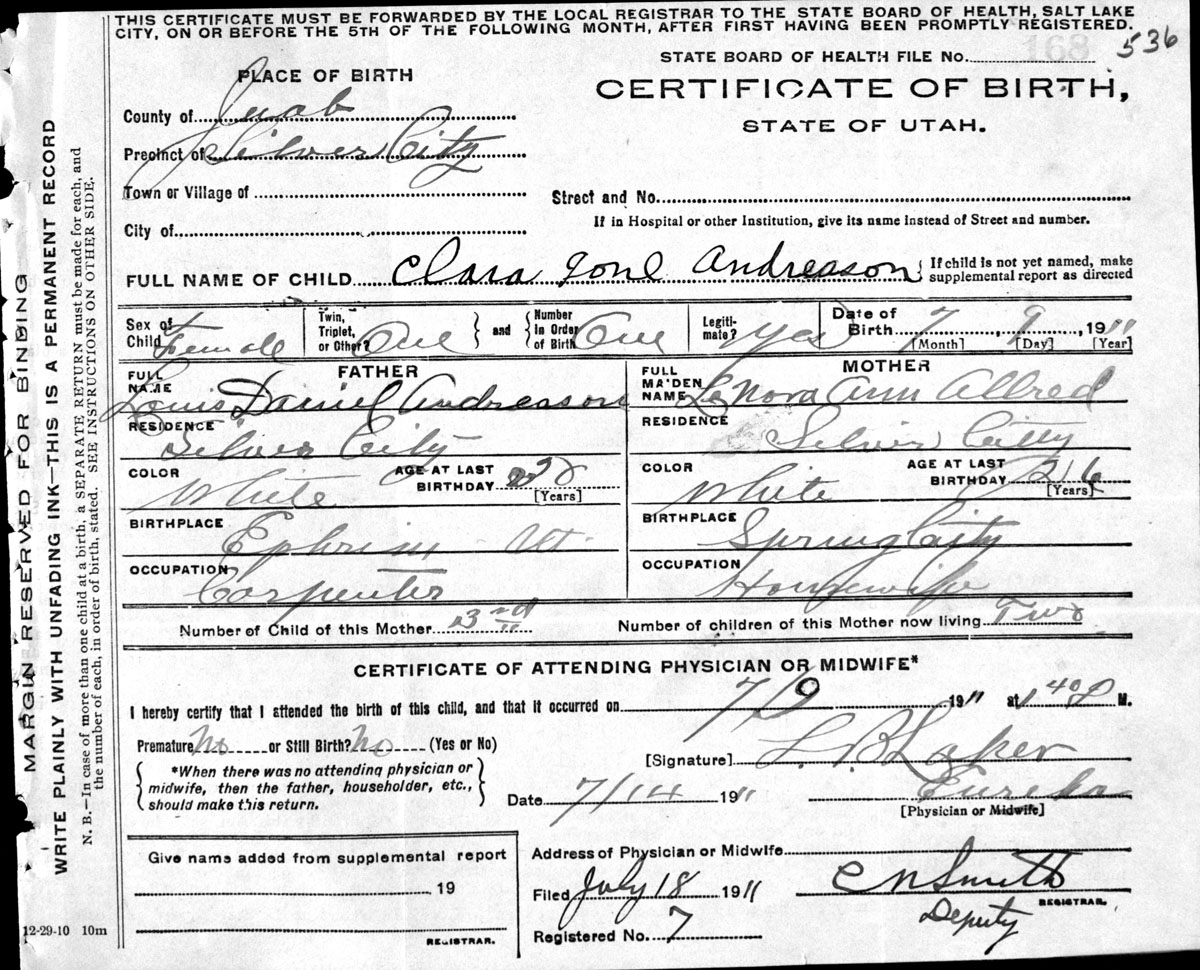 THIS CERTIFICATE MUST BE FORWARDED BY THE LOCAL REGISTRAR TO THE STATE BOARD OF HEALTH, SALT LAKE
CITY, ON OR BEFORE THE 5TH OF THE FOLLOWING MONTH, AFTER FIRST HAVING BEEN PROMPTLY REGISTERED.
536
STATE BOARD OF HEALTH FILE No. 168
PLACE OF BIRTH
CERTIFICATE OF BIRTH,
STATE OF UTAH.
County of Juab
Precinct of Silver City
Town or Village of
Street and No.
If in Hospital or other Institution, give its name instead of Street and number.
City of
FULL NAME OF CHILD Clara Ione Andreason { If child is not yet named, make
supplemental report as directed
Sex of Child Female
Twin, Triplet, or Other? One } and { Number in Order of Birth One
Legiti-mate? yes
Date of Birth 7, 9, 1911
[Month] [Day] [Year]
FATHER
FULL NAME Louis Daniel Andreason
RESIDENCE Silver City
COLOR White AGE AT LAST BIRTHDAY 28 [Years]
BIRTHPLACE Ephrim Ut.
OCCUPATION Carpenter
MOTHER
FULL MAIDEN NAME LeNora Ann Allred
RESIDENCE Silver Citty
COLOR White AGE AT LAST BIRTHDAY 26 [Years]
BIRTHPLACE Spring City
OCCUPATION Housewife
Number of Child of this Mother 3rd
Number of children of this Mother now living Two
CERTIFICATE OF ATTENDING PHYSICIAN OR MIDWIFE*
I hereby certify that I attended the birth of this child, and that it occurred on 7/9 1911 at 1 40 P M.
Premature No or Still Birth? No (Yes or No)
{ *When there was no attending physician or
midwife, then the father, householder, etc.,
should make this return. }
[Signature] L. B. Laker
Date 7/14 1911 Eureka
[Physician or Midwife]
Give name added from supplemental report
19
REGISTRAR.
Address of Physician or Midwife
Filed July 18 1911 C N Smith
REGISTRAR.
Deputy
Registered No. 7
12-29-10 10m
MARGIN RESERVED FOR BINDING
WRITE PLAINLY WITH UNFADING INK—THIS IS A PERMANENT RECORD
N. B.—In case of more than one child at a birth, a SEPARATE RETURN must be made for each, and
the number of each, in order of birth, stated. SEE INSTRUCTIONS ON OTHER SIDE.